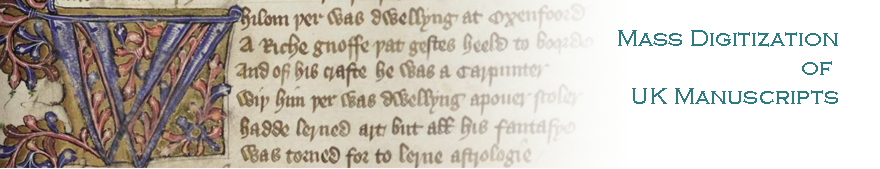 Whilom þer was dwellyng at Oxenfoord
A Riche gnoffe þat gestes heeld to boorde
And of his crafte he was a Carpunter
Wiþ him þer was dwellyng apouer scoler
hadde lerned art but all his fantasye
Was torned for to lerne astrologie
MASS DIGITIZATION
OF
UK MANUSCRIPTS